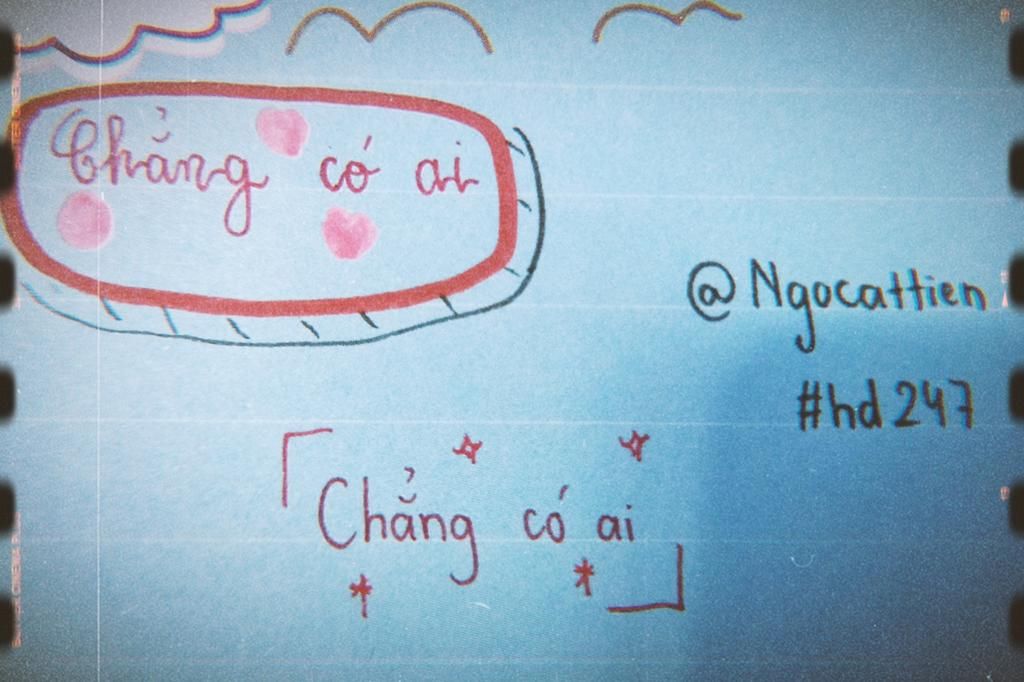 Chẳng có ai
@Ngocattien
#hd247
Chẳng có ai